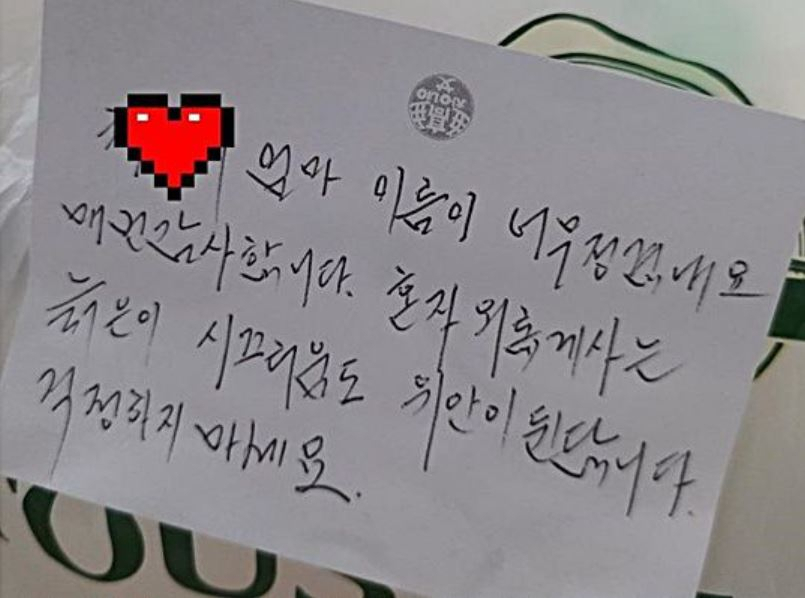 엄마 이름이 너무정겹내요
매번감사합니다. 혼자 외롭게사는
늙은이 시끄러움도 위안이 된답니다.
걱정하지 마세요.